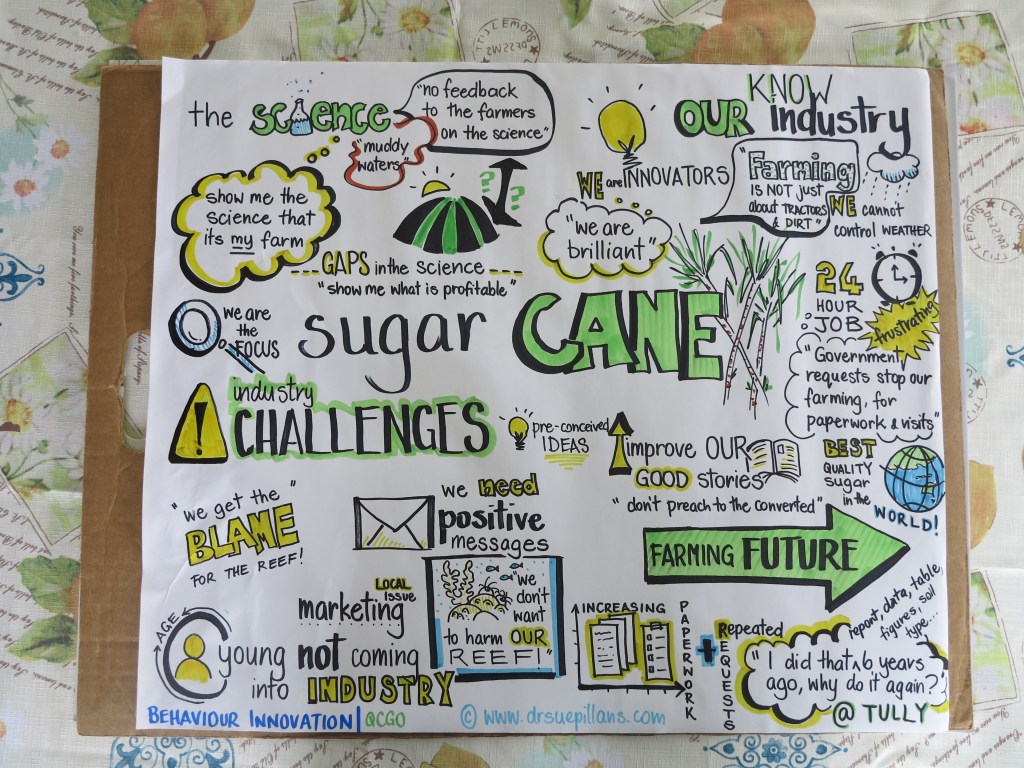 the SCIENCE
"no feedback
to the farmers
on the science"
"muddy
waters"
show me the
science that
its my farm
? ? ?
GAPS in the science
"show me what is profitable"
KNOW
OUR industry
WE are INNOVATORS
"we are
brilliant"
"Farming
IS NOT just
about TRACTORS
& DIRT"
WE cannot
control WEATHER
24
HOUR
JOB
frustrating
"Government
requests stop our
farming, for
paperwork & visits"
we are
the
FOCUS
sugar CANE
!
industry
CHALLENGES
pre-conceived
IDEAS
improve OUR
GOOD stories
"don't preach to the converted"
BEST
QUALITY
sugar
in the
WORLD!
"we get the"
BLAME
FOR THE REEF!
we need
positive
messages
FARMING FUTURE
LOCAL
issue
marketing
"we
don't
want
to harm OUR
REEF!"
AGE
young not coming
into INDUSTRY
INCREASING
PAPERWORK
+
Repeated
REQUESTS
report, data, table,
figures, soil
type...
"I did that 6 years
ago, why do it again?"
@ TULLY
BEHAVIOUR INNOVATION | QCGO
© www.drsuepillans.com